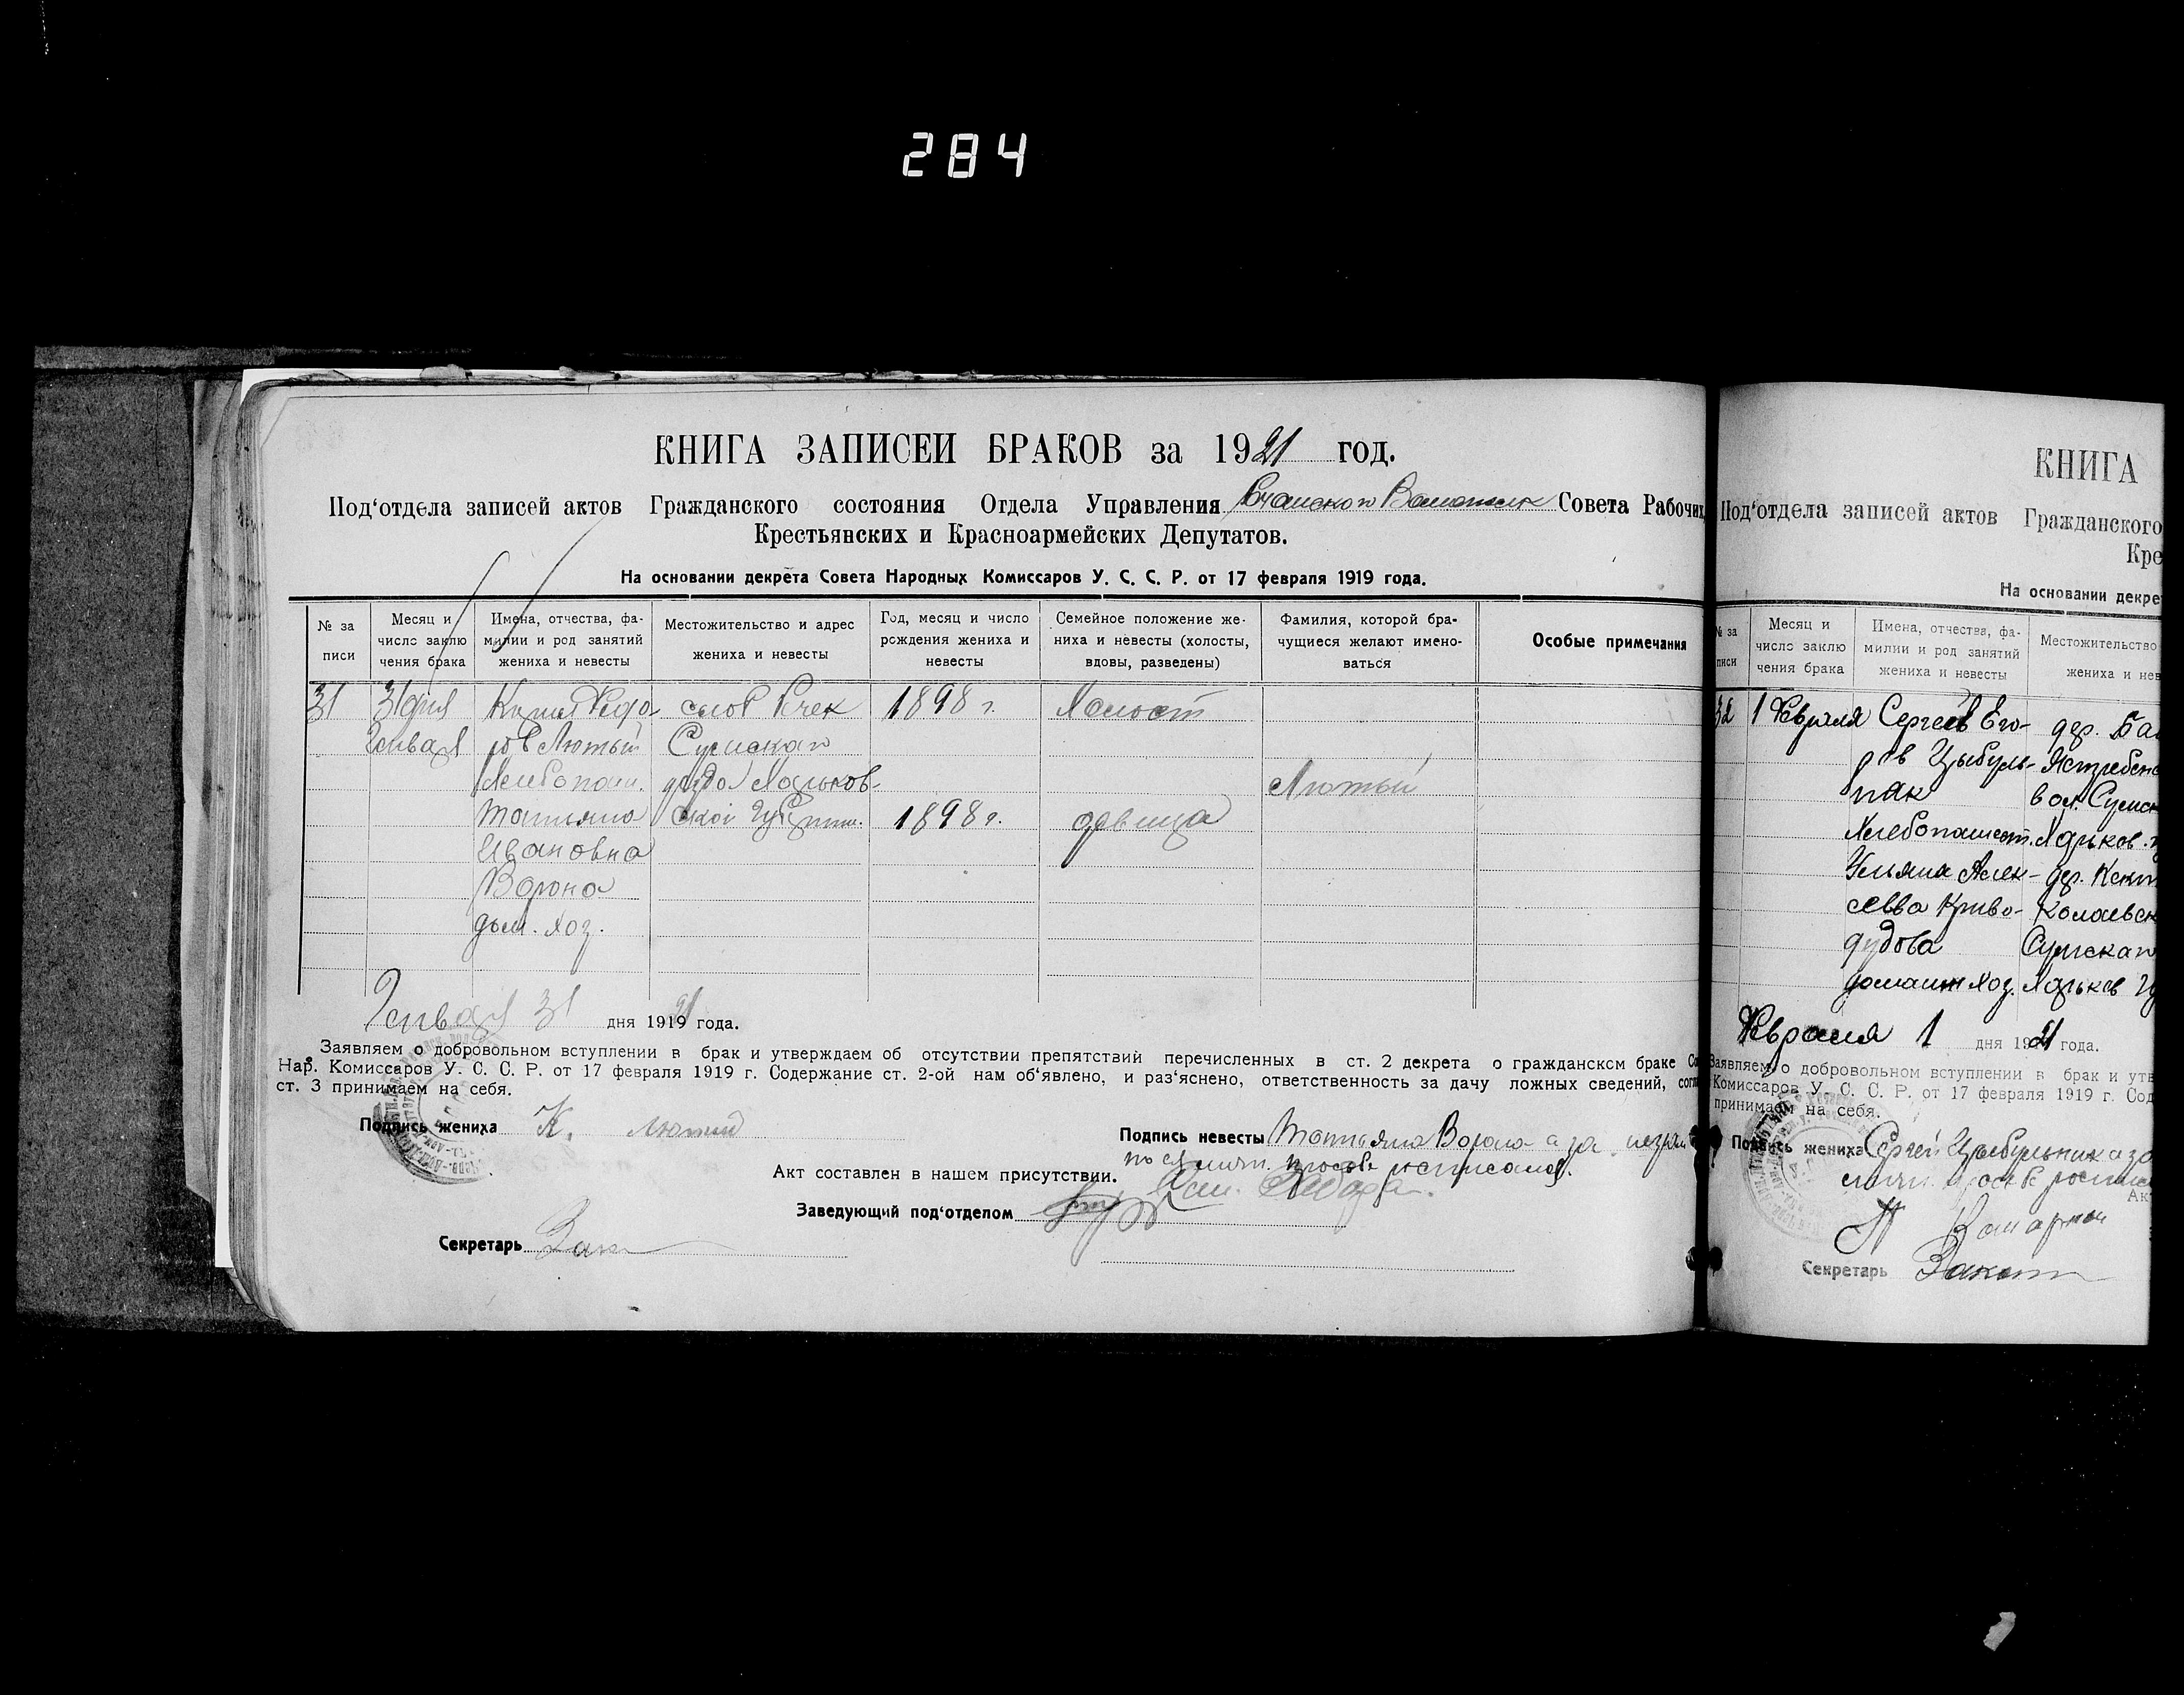 284
КНИГА ЗАПИСЕИ БРАКОВ за 1921 год.
Под‘отдела записей актов Гражданского состояния Отдела Управления Совета Рабочих,
Крестьянских и Красноармейских Депутатов.
На основании декрета Совета Народных Комиссаров У. С. С. Р. от 17 февраля 1919 года.
№ за писи
Месяц и число заклю чения брака
Имена, отчества, фа- милии и род занятий жениха и невесты
Местожительство и адрес жениха и невесты
Год, месяц и число рождения жениха и невесты
Семейное положение же- ниха и невесты (холосты, вдовы, разведены)
Фамилия, которой бра- чущиеся желают имено- ваться
Особые примечания
31 31 дня 1898 г. Холост
Января ров Лютый Сумскаго
Хлебопаш. уезда Харьков- Лютый
Татьяна ской Губерн. 1898 г. девица
Ивановна
Ворона
дом. хоз.
Января 31 дня 1921 года.
Заявляем о добровольном вступлении в брак и утверждаем об отсутствии препятствий перечисленных в ст. 2 декрета о гражданском браке Со
Нар. Комиссаров У. С. С. Р. от 17 февраля 1919 г. Содержание ст. 2-ой нам об‘явлено, и раз‘яснено, ответственность за дачу ложных сведений, согл
ст. 3 принимаем на себя.
Подпись жениха К. Лютий
Подпись невесты Татьяна Ворона а за
Акт составлен в нашем присутствии.
Заведующий под‘отделом
Секретарь
КНИГА
Под‘отдела записей актов Гражданского
Кре
На основании декре
№ за писи
Месяц и число заклю чения брака
Имена, отчества, фа- милии и род занятий жениха и невесты
Местожительство жениха и нев
32 1 Февраля Сергеев Его- дер.
ров Цыбуль-
ник вол. Сумск
Харьков.
Ульяна Алек- дер.
сеевна Криво-
дудова Сумскаго
домашн хоз. Харьков
Февраля 1 дня 1921 года.
Заявляем о добровольном вступлении в брак и утв
Комиссаров У. С. С. Р. от 17 февраля 1919 г. Сод
принимаем на себя.
Подпись жениха Сергей Цыбульник а за
Ак
Секретарь